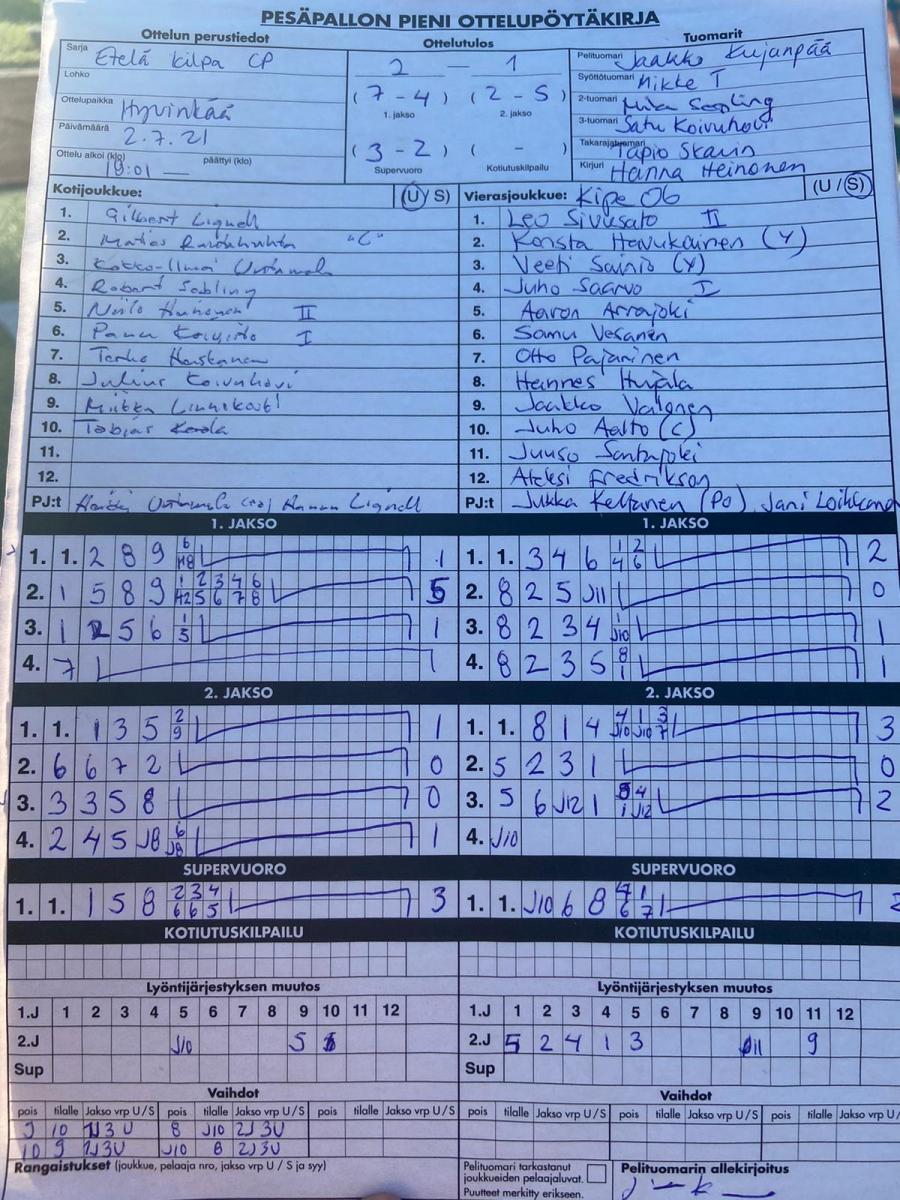 PESÄPALLON PIENI OTTELUPÖYTÄKIRJA
Ottelun perustiedot
Sarja Etelä Kilpa CP
Lohko
Ottelupaikka Hyvinkää
Päivämäärä 2.7.21
Ottelu alkoi (klo) 18:01 päättyi (klo)
Ottelutulos
2 — 1
(7-4) (2-5)
1. jakso 2. jakso
(3-2) ( - )
Supervuoro Kotiutuskilpailu
Tuomarit
Pelituomari Jaakko Kujanpää
Syöttötuomari Mikke T
2-tuomari Mika
3-tuomari Satu Koivuhovi
Takarajatuomari Tapio Skarin
Kirjuri Hanna Heinonen
Kotijoukkue: (U/S)
1. Gilbert Lignell
2. Matias "C"
3.
4. Robert Sebling
5. Niilo II
6. Panu Koivisto I
7.
8. Julius Koivuhovi
9. Miikka
10. Tobias
11.
12.
PJ:t Lignell
Vierasjoukkue: Kipe 06 (U/S)
1. Leo Sivusato II
2. Konsta Havukainen (Y)
3. Veeti Sainio (Y)
4. Juho Saarvo I
5. Aaron Arrajoki
6. Samu Vesanen
7. Otto Pajarinen
8. Hannes Hujala
9. Jaakko
10. Juho Aalto (C)
11. Juuso Santajoki
12. Aleksi Fredrikson
PJ:t Jukka Keltanen (PO), Jani
1. JAKSO
1. 1. 2 8 9 6 H8 1
2. 1 5 8 9 1 2 3 4 6 42 5 6 7 8 5
3. 1 2 5 6 1 5 1
4. 7
1. JAKSO
1. 1. 3 4 6 1 2 4 6 2
2. 8 2 5 J11 0
3. 8 2 3 4 1 J10 1
4. 8 2 3 5 8 1 1
2. JAKSO
1. 1. 1 3 5 2 9 1
2. 6 6 7 2 0
3. 3 3 5 8 0
4. 2 4 5 J8 6 J8 1
2. JAKSO
1. 1. 8 1 4 4 1 3 J10 J10 7 3
2. 5 2 3 1 0
3. 5 6 J12 1 4 1 J12 2
4. J10
SUPERVUORO
1. 1. 1 5 8 2 3 4 6 6 5 3
SUPERVUORO
1. 1. J10 6 8 4 1 6 7 2
KOTIUTUSKILPAILU
KOTIUTUSKILPAILU
Lyöntijärjestyksen muutos
1.J 1 2 3 4 5 6 7 8 9 10 11 12
2.J J10 5
Sup
Lyöntijärjestyksen muutos
1.J 1 2 3 4 5 6 7 8 9 10 11 12
2.J 5 2 4 1 3 J11 9
Sup
Vaihdot
pois tilalle Jakso vrp U/S pois tilalle Jakso vrp U/S pois tilalle Jakso vrp U/S
9 10 1J 3 U 8 J10 2J 3U
10 9 2J 3U J10 8 2J 3U
Vaihdot
pois tilalle Jakso vrp U/S pois tilalle Jakso vrp U/S pois tilalle Jakso vrp U/
Rangaistukset (joukkue, pelaaja nro, jakso vrp U / S ja syy)
Pelituomari tarkastanut
joukkueiden pelaajaluvat.
Puutteet merkitty erikseen.
Pelituomarin allekirjoitus